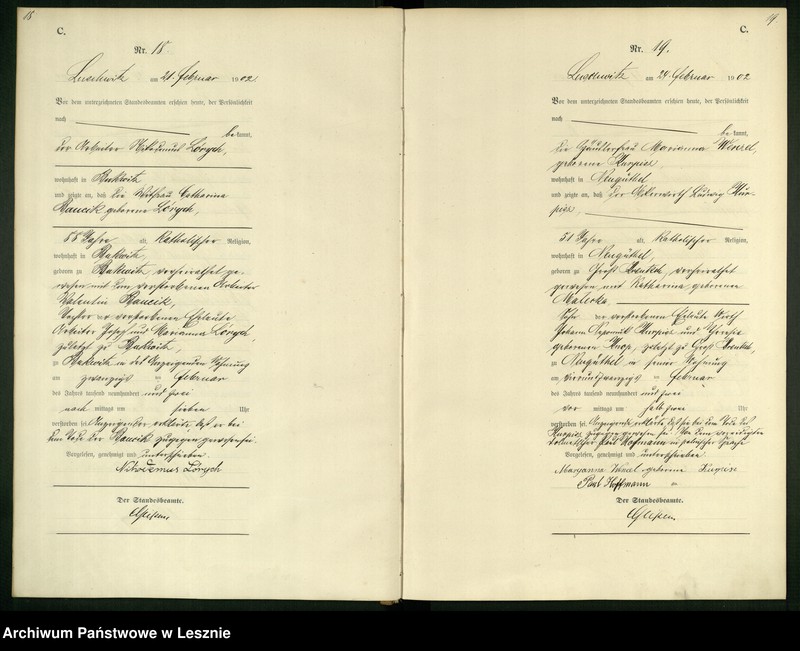 18
C.
Nr. 18
Luschwitz am 21. Februar 1902.
Vor dem unterzeichneten Standesbeamten erschien heute, der Persönlichkeit
nach
bekannt,
der Arbeiter Nikodemus Lörych,
wohnhaft in Bukwitz
und zeigte an, daß die Wittfrau Catharina
geborene Lörych,
Jahre alt, Katholischer Religion,
wohnhaft in Bukwitz,
geboren zu Bukwitz, verheirathet ge-
wesen mit dem verstorbenen Arbeiter
Valentin
Tochter der verstorbenen Eheleute
Arbeiter Josef und Marianna Lörych,
zuletzt zu Bukwitz,
zu Bukwitz in der Wohnung
am zwanzigsten Februar
des Jahres tausend neunhundert und zwei
nach mittags um sieben Uhr
verstorben sei. Anzeigender erklärte, daß er bei
dem Tode der zugegen gewesen sei.
Vorgelesen, genehmigt und unterschrieben.
Nikodemus Lörych
Der Standesbeamte.
19.
C.
Nr. 19.
Luschwitz am 24. Februar 1902
Vor dem unterzeichneten Standesbeamten erschien heute, der Persönlichkeit
nach
bekannt,
die Häuslerfrau Marianna
geborene
wohnhaft in Neuguthel
und zeigte an, daß der Ludwig
51 Jahre alt, Katholischer Religion,
wohnhaft in Neuguthel,
geboren zu Groß verheirathet
gewesen mit Katharina geborenen
Malecka
Sohn der verstorbenen Eheleute Wirth
Johann und
geborenen zuletzt zu Groß
zu Neuguthel in seiner Wohnung
am vierundzwanzigsten Februar
des Jahres tausend neunhundert und zwei
vor mittags um halb zwei Uhr
verstorben sei. Anzeigende erklärte, daß sie bei dem Tode des
zugegen gewesen sei. Von dem vereidigten
Dolmetscher Paul Hofmann in polnischer Sprache
Vorgelesen, genehmigt und unterschrieben.
Maryanna geborene
Paul Hoffmann
Der Standesbeamte.
Archiwum Państwowe w Lesznie